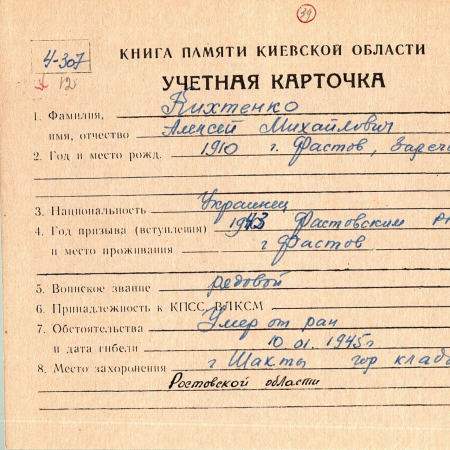 39
Ч-307
12
КНИГА ПАМЯТИ КИЕВСКОЙ ОБЛАСТИ
УЧЕТНАЯ КАРТОЧКА
1. Фамилия, Пихтенко
имя, отчество Алексей Михайлович
2. Год и место рожд. 1910 г. Фастов, Заречь
3. Национальность Украинец
4. Год призыва (вступления) 1943 Фастовским
и место проживания г Фастов
5. Воинское звание редовой
6. Принадлежность к КПСС ВЛКСМ
7. Обстоятельства Умер от ран
и дата гибели 10.01.1945г
8. Место захоронения г Шахты гор клад
Ростовской области